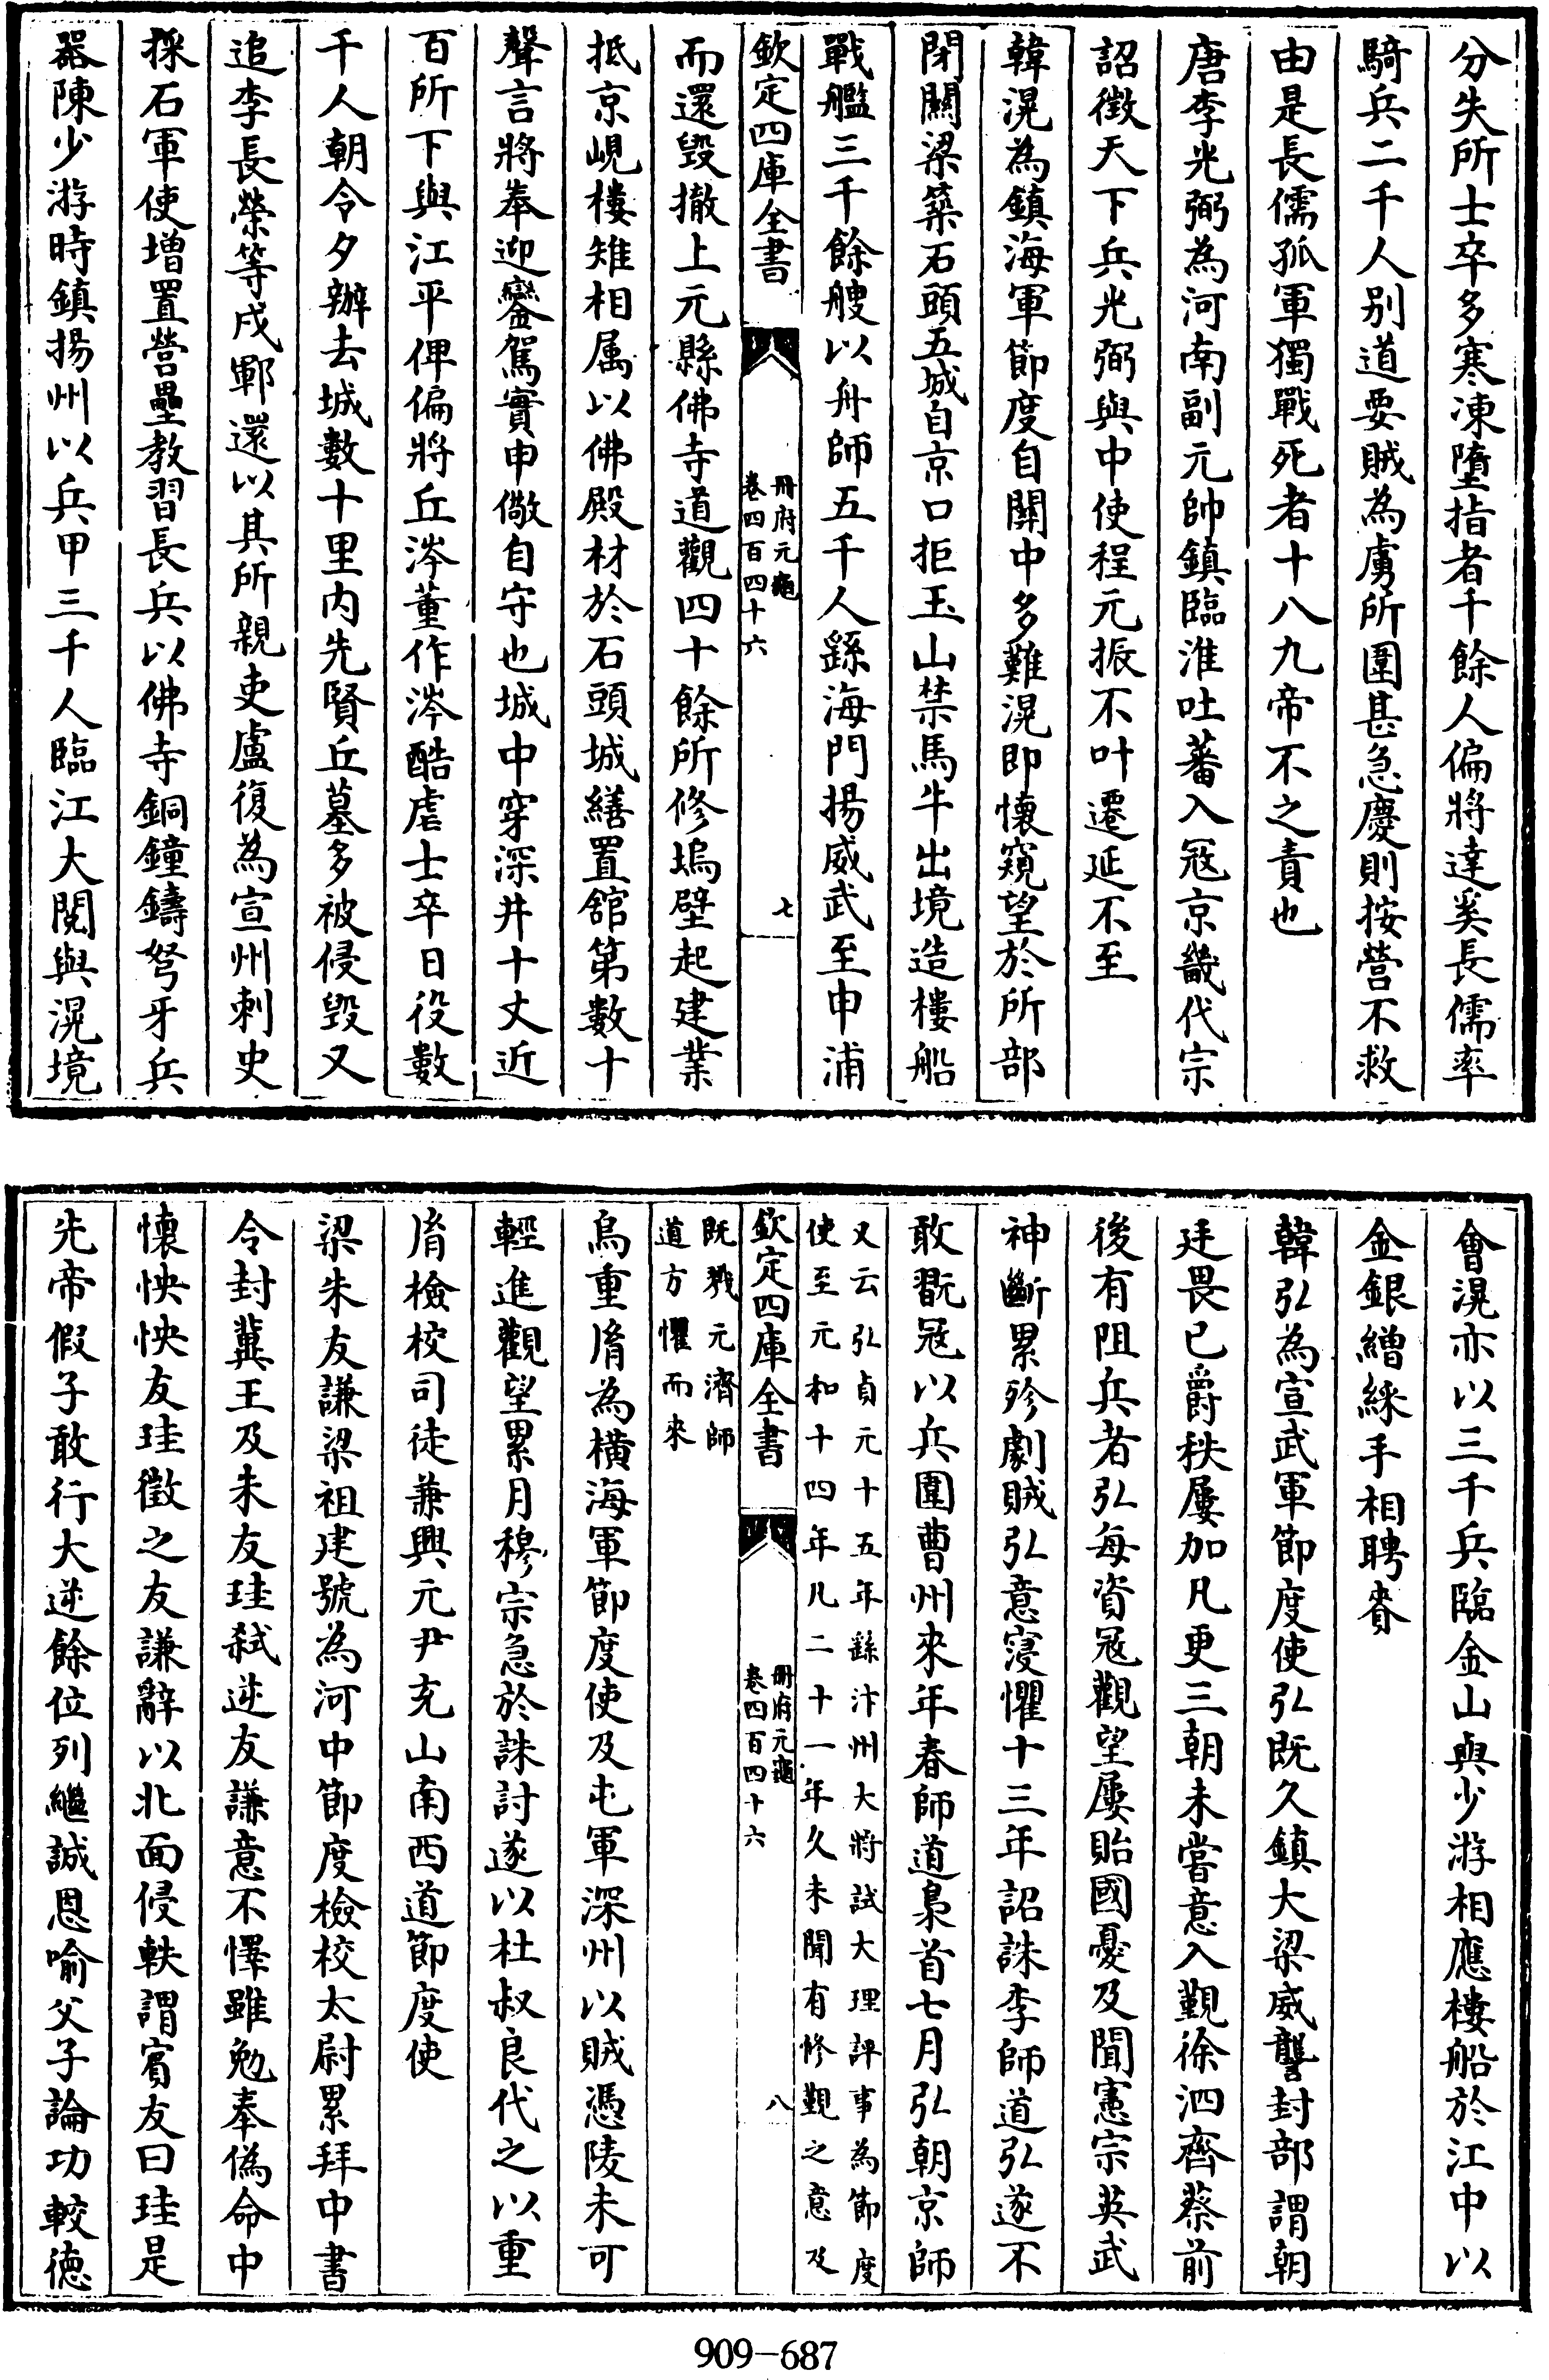 分失所士卒多寒凍墮指者千餘人偏將達奚長儒率
騎兵二千人别道要賊為虜所圍甚急慶則按營不救
由是長儒孤軍獨戰死者十八九帝不之責也
唐李光弼為河南副元帥鎮臨淮吐蕃入冦京畿代宗
詔徴天下兵光弼與中使程元振不叶遷延不至
韓滉為鎮海軍節度自關中多難滉即懷窺望於所部
閉關梁築石頭五城自京口拒玉山禁馬牛出境造樓船
戰艦三千餘艘以舟師五千人繇海門揚威武至申浦
欽定四庫全書
冊府元龜
卷四百四十六
七
而還毀撤上元縣佛寺道觀四十餘所修塢壁起建業
抵京峴樓雉相属以佛殿材於石頭城繕置舘第數十
聲言將奉迎鑾駕實申儆自守也城中穿深井十丈近
百所下與江平俾偏將丘涔董作涔酷虐士卒日役數
千人朝令夕辦去城數十里内先賢丘墓多被侵毀又
追李長榮等戍鄆還以其所親吏盧復為宣州刺史
採石軍使增置營壘教習長兵以佛寺銅鐘鑄弩牙兵
器陳少游時鎮揚州以兵甲三千人臨江大閱與滉境
會滉亦以三千兵臨金山與少游相應樓船於江中以
金銀繒綵手相聘賚
韓弘為宣武軍節度使弘既久鎮大梁威讋封部謂朝
廷畏已爵秩屢加凡更三朝未嘗意入覲徐泗齊蔡前
後有阻兵者弘每資冦觀望屢貽國憂及聞憲宗英武
神斷累殄劇賊弘意寖懼十三年詔誅李師道弘遂不
敢翫冦以兵圍曹州來年春師道梟首七月弘朝京師
又云弘貞元十五年繇汴州大將試大理評事為節度
使至元和十四年凡二十一年久未聞有修覲之意及
欽定四庫全書
冊府元龜
卷四百四十六
八
既戮元濟師
道方懼而來
烏重㣧為橫海軍節度使及屯軍深州以賊憑陵未可
輕進觀望累月穆宗急於誅討遂以杜叔良代之以重
㣧檢校司徒兼興元尹充山南西道節度使
梁朱友謙梁祖建號為河中節度檢校太尉累拜中書
令封冀王及朱友珪弑逆友謙意不懌雖勉奉偽命中
懷怏怏友珪徵之友謙辭以北面侵軼謂賓友曰珪是
先帝假子敢行大逆餘位列繼誠恩喻父子論功較德
909-687